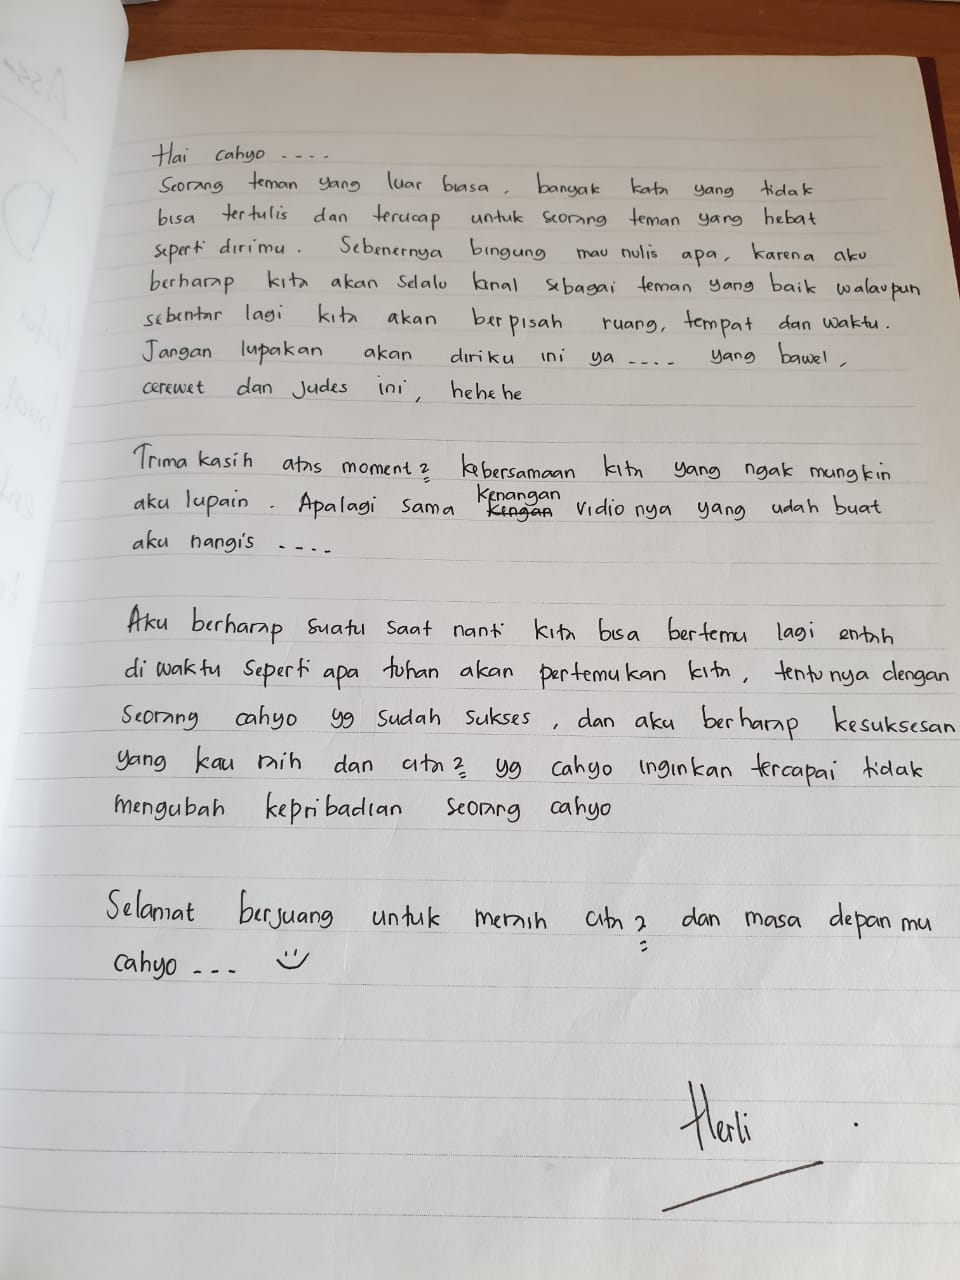 Hai cahyo ....
Seorang teman yang luar biasa, banyak kata yang tidak
bisa tertulis dan terucap untuk seorang teman yang hebat
seperti dirimu. Sebenernya bingung mau nulis apa, karena aku
berharap kita akan selalu kenal sebagai teman yang baik walaupun
sebentar lagi kita akan berpisah ruang, tempat dan waktu.
Jangan lupakan akan diriku ini ya .... yang bawel,
cerewet dan Judes ini, hehehe
Trima kasih atas moment2 kebersamaan kita yang ngak mungkin
aku lupain. Apalagi sama kenangan vidionya yang udah buat
aku nangis ....
Aku berharap suatu saat nanti kita bisa bertemu lagi entah
di waktu seperti apa tuhan akan pertemukan kita, tentunya dengan
Seorang cahyo yg sudah sukses, dan aku berharap kesuksesan
yang kau raih dan cita2 yg cahyo inginkan tercapai tidak
mengubah kepribadian seorang cahyo
Selamat berjuang untuk meraih cita2 dan masa depan mu
cahyo ---
Herli